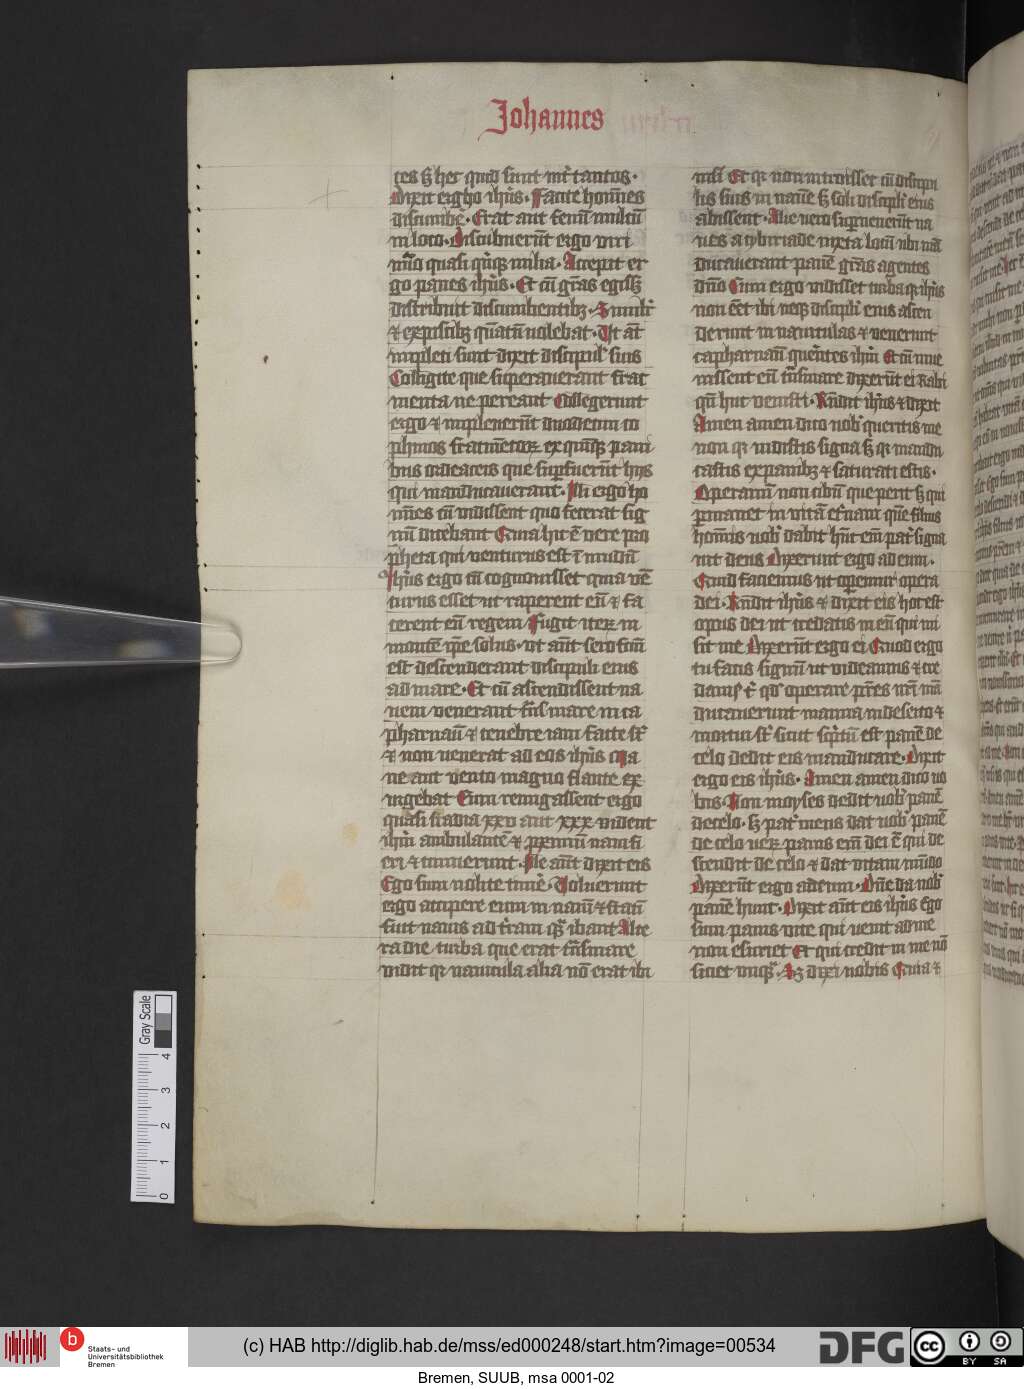 Johannes
ces sȝ hec quid sunt int͛ tantos·
Dixit ergo ih̅us· Facite hom̅nes
discumbe̅· Erat aut fenu̅ multu̅
in loco· Discubuer̅nt ergo viri
nu̅o quasi qu̅qȝ milia· Accepit er
go panes ih̅us· Et cu̅ gr̅as egissȝ
distribuit discumbentibȝ· Similr̛
& ex piscibȝ qua̅tu̅ volebat· Ut au̅t
impleti sunt dixit discipul̛ suis
Colligite que superaverant frac
menta ne pereant Collegerunt
ergo & impleverunt duodecim co
phinos fracme̅toꝝ ex qui̅qȝ pani
bus ordeaceis que sup̅fueru̅t hijs
qui manducaverant· Illi ergo ho
mi̅es cu̅ vidissent quo fecerat sig
nu̅ dicebant Quia hic e̅ vere pro
pheta qui venturus est i̅ mu̅du̅
Ih̅us ergo cu̅ cognovisset quia ve̅
turus esset ut raperent eu̅ & fa
cerent eu̅ regem Fugit iteꝝ in
monte̅ ip̅e solus· ut aut̅ sero fcm̅
est descenderant discipuli eius
ad mare· Et cu̅ ascendissent na
vem venerunt tn̅s mare in ca
pharnau̅ & tenebre iam facte st̅
& non venerat ad eos ih̅us Ma
re aut vento magno flante ex
urgebat Cum remigassent ergo
quasi stadia xxv aut xxx vident
ih̅m ambulante̅ & pxmu̅ navi fi
eri & timuerunt· Ille au̅t dixit eis
Ego sum nolite time̅· Voluerunt
ergo accipere eum in navi̅ & stati̅
fuit navis ad t̅ram qȝ ibant Alte
ra die turba que erat tn̅s mare
vidit qꝛ navicula alia no̅ erat ibi
nisi Et qꝛ non introisset cu̅ discipu
lis suis in nave̅ sȝ soli discipl̛i eius
abissent· Alie vero sup̅venerunt na
ves a tyberiade iuxta locu̅ ubi ma̅
ducaverant pane̅ gr̅as agentes
dn̅o Cum ergo vidisset turba qꝛ ih̅us
non e̅et ibi neqȝ discipl̛i eius ascen
derunt in naviculas & venerunt
capharnau̅ quere̅tes ih̅m Et cu̅ inve
nissent eu̅ tn̅s mare dixeru̅t ei Rabi
qn̅ huc venisti· Rn̅dit ih̅us & dixit
Amen amen dico vob̛ queritis me
non qꝛ vidistis signa sȝ qꝛ mandu
castis ex panibȝ & saturati estis·
Operami̅ non cibu̅ que perit sȝ qui
permanet in vita̅ et̅nam que̅ filius
homi̅s vob̛ dabit hu̅c em̅ pat̛ signa
vit deus Dixerunt ergo ad eum·
Quid faciemus ut operemur opera
dei· Rn̅dit ih̅us & dixit eis hoc est
opus dei ut credatis in eu̅ qui mi
sit me Dixeru̅t ergo ei Quod ergo
tu facis signu̅ ut videamus & cre
damꝰ t̛ qd̛ operare pr̅es nr̅i ma̅
ducaverunt manna in deserto &
mortui st̅ sicut scptu̅ est pane̅ de
celo dedit eis manducare· Dixit
ergo eis ih̅us· Amen amen dico vo
bis· Non moyses dedit vob̛ pane̅
de celo· sȝ pat̛ meus dat vob̛ pane̅
de celo veꝝ panis em̅ dei e̅ qui de
scendit de celo & dat vitam mu̅do
Dixeru̅t ergo ad eum· Dn̅e da nob̛
pane̅ hunc· Dixit au̅t eis ih̅us Ego
sum panis vite qui venit ad me
non esuriet Et qui credit in me no̅
siciet unqȝ· Sȝ dixi vobis Quia &
Gray Scale
4
3
2
1
0
b Staats- und
Universitätsbibliothek
Bremen
(c) HAB http://diglib.hab.de/mss/ed000248/start.htm?image=00534
DFG
cc BY SA
Bremen, SUUB, msa 0001-02